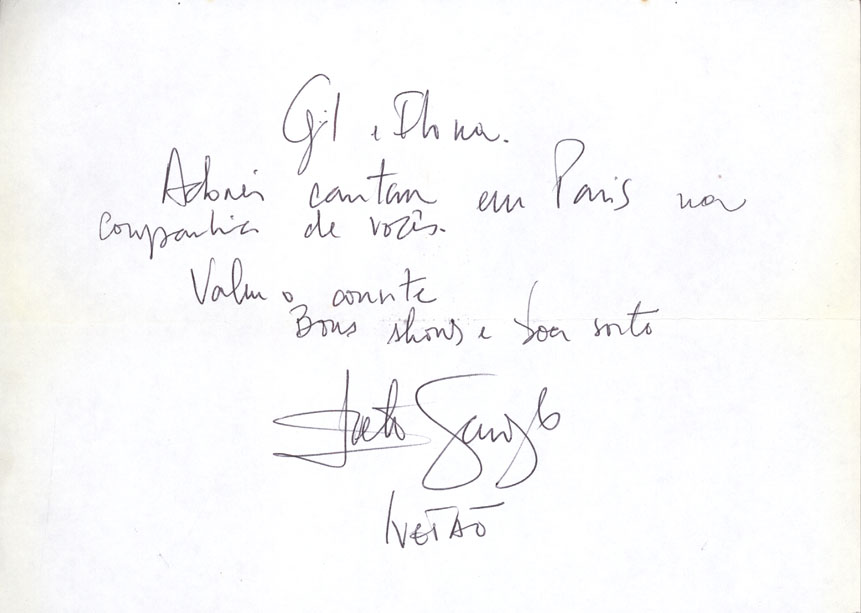 Gil e Flora.
Adorei cantar em Paris na
companhia de vocês.
Valeu o convite
Bons shows e boa sorte
Ivete Sangalo
IVETÃO